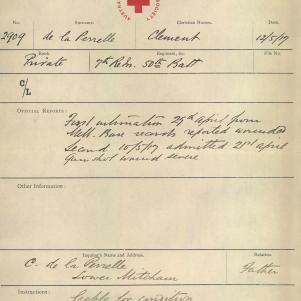 No. Surname: Christian Names. Date.
2909 de la Perrelle Clement 12/5/17
Rank. Regiment, &c. File No.
Private 7th Rein. 50th Batt
C/L
OFFICIAL REPORTS:
First information 29th April from
Melb. Base records reported wounded
Second 10/5/17 admitted 21st April
Gun shot wound severe
Other Information:
Inquirer's Name and Address. Relation.
C. de la Perrelle Father
Lower Mitcham
Instructions: Cable for condition